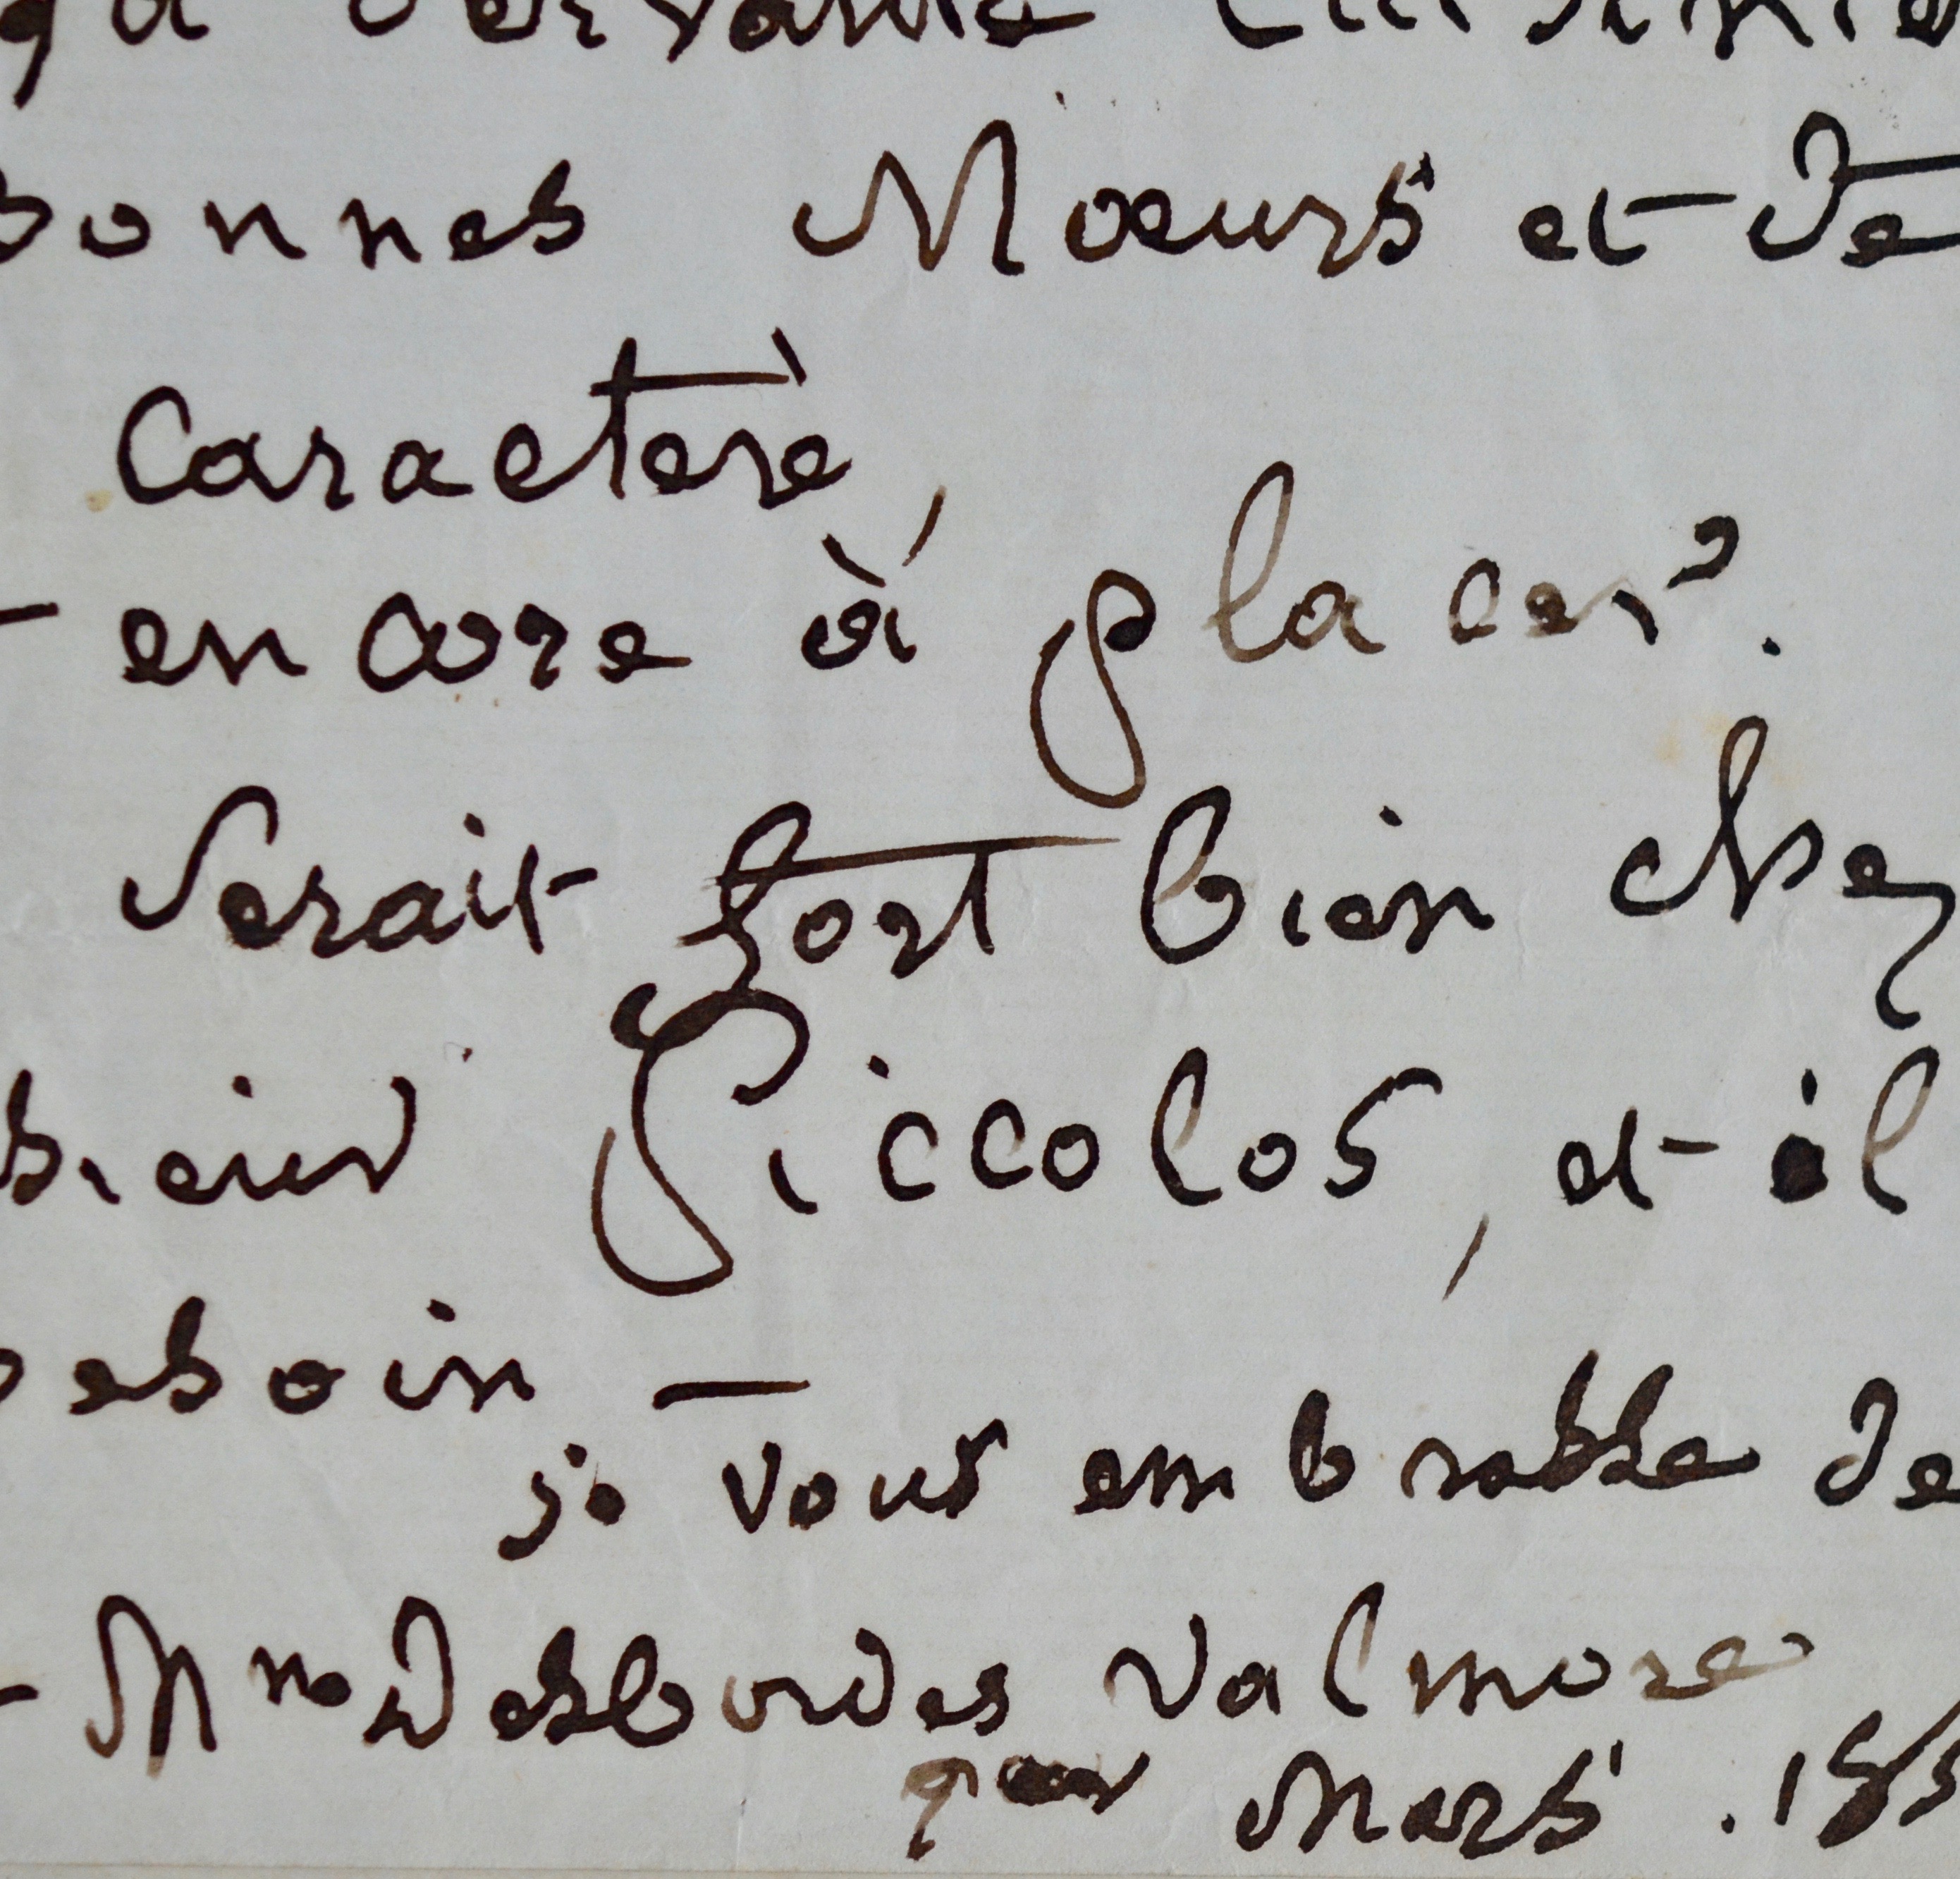 servante cuisiniè
bonnes Mœurs et de
Caractère,
encore à placer.
Serait fort bien chez
sieur Piccolos, et il
besoin —
je vous embrasse de
Mme Desbordes Valmore
Mars. 185